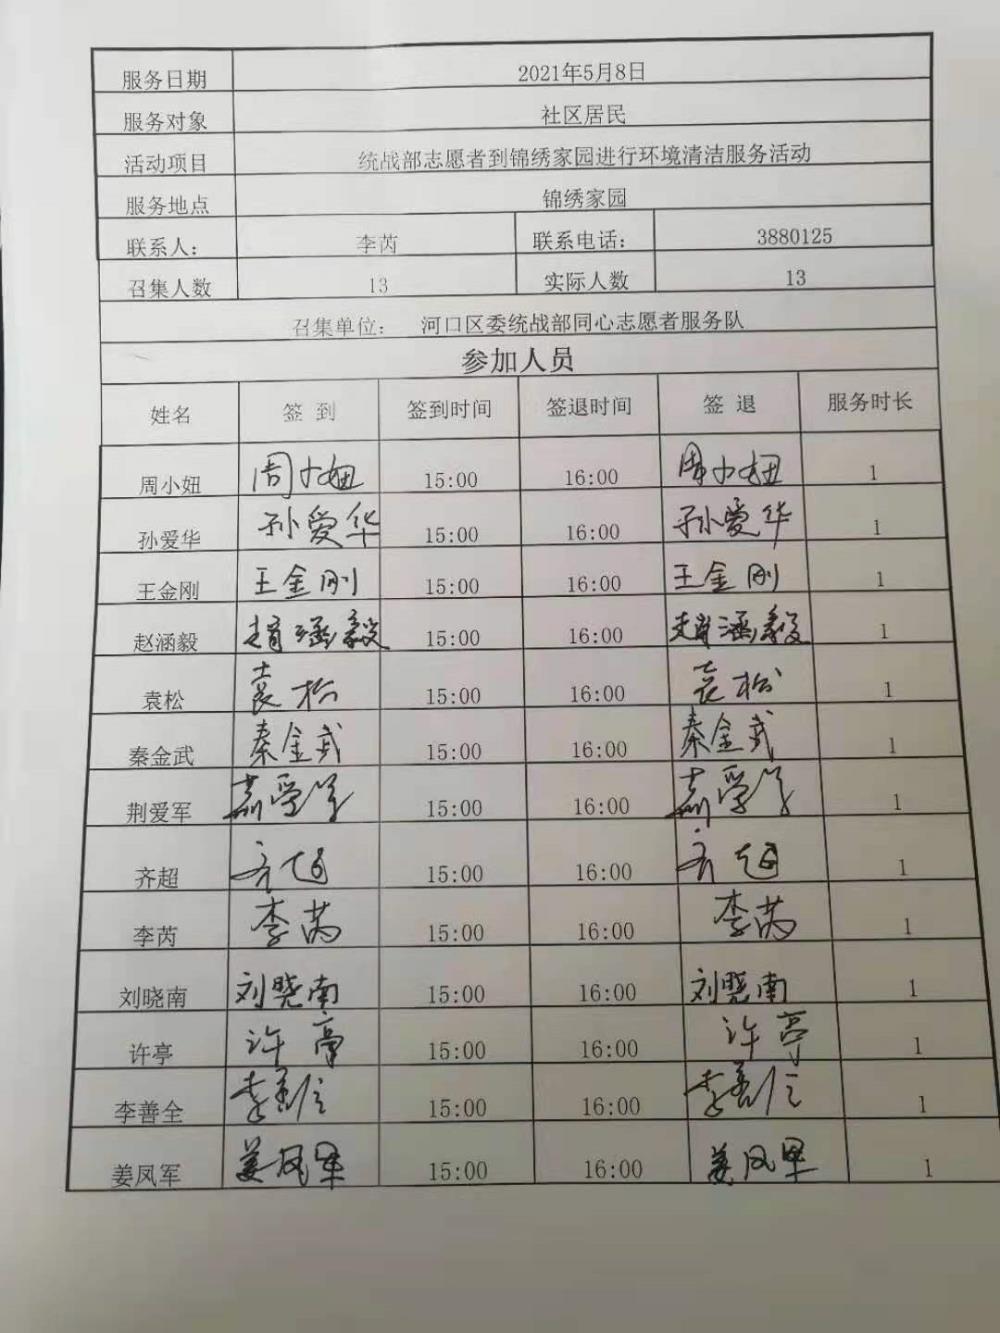 服务日期 2021年5月8日
服务对象 社区居民
活动项目 统战部志愿者到锦绣家园进行环境清洁服务活动
服务地点 锦绣家园
联系人： 李芮 联系电话： 3880125
召集人数 13 实际人数 13
召集单位： 河口区委统战部同心志愿者服务队
参加人员
姓名 签 到 签到时间 签退时间 签 退 服务时长
周小妞 周小妞 15:00 16:00 周小妞 1
孙爱华 孙爱华 15:00 16:00 孙爱华 1
王金刚 王金刚 15:00 16:00 王金刚 1
赵涵毅 赵涵毅 15:00 16:00 赵涵毅 1
袁松 袁松 15:00 16:00 袁松 1
秦金武 秦金武 15:00 16:00 秦金武 1
荆爱军 荆爱军 15:00 16:00 荆爱军 1
齐超 齐超 15:00 16:00 齐超 1
李芮 李芮 15:00 16:00 李芮 1
刘晓南 刘晓南 15:00 16:00 刘晓南 1
许亭 许亭 15:00 16:00 许亭 1
李善全 李善全 15:00 16:00 李善全 1
姜凤军 姜凤军 15:00 16:00 姜凤军 1